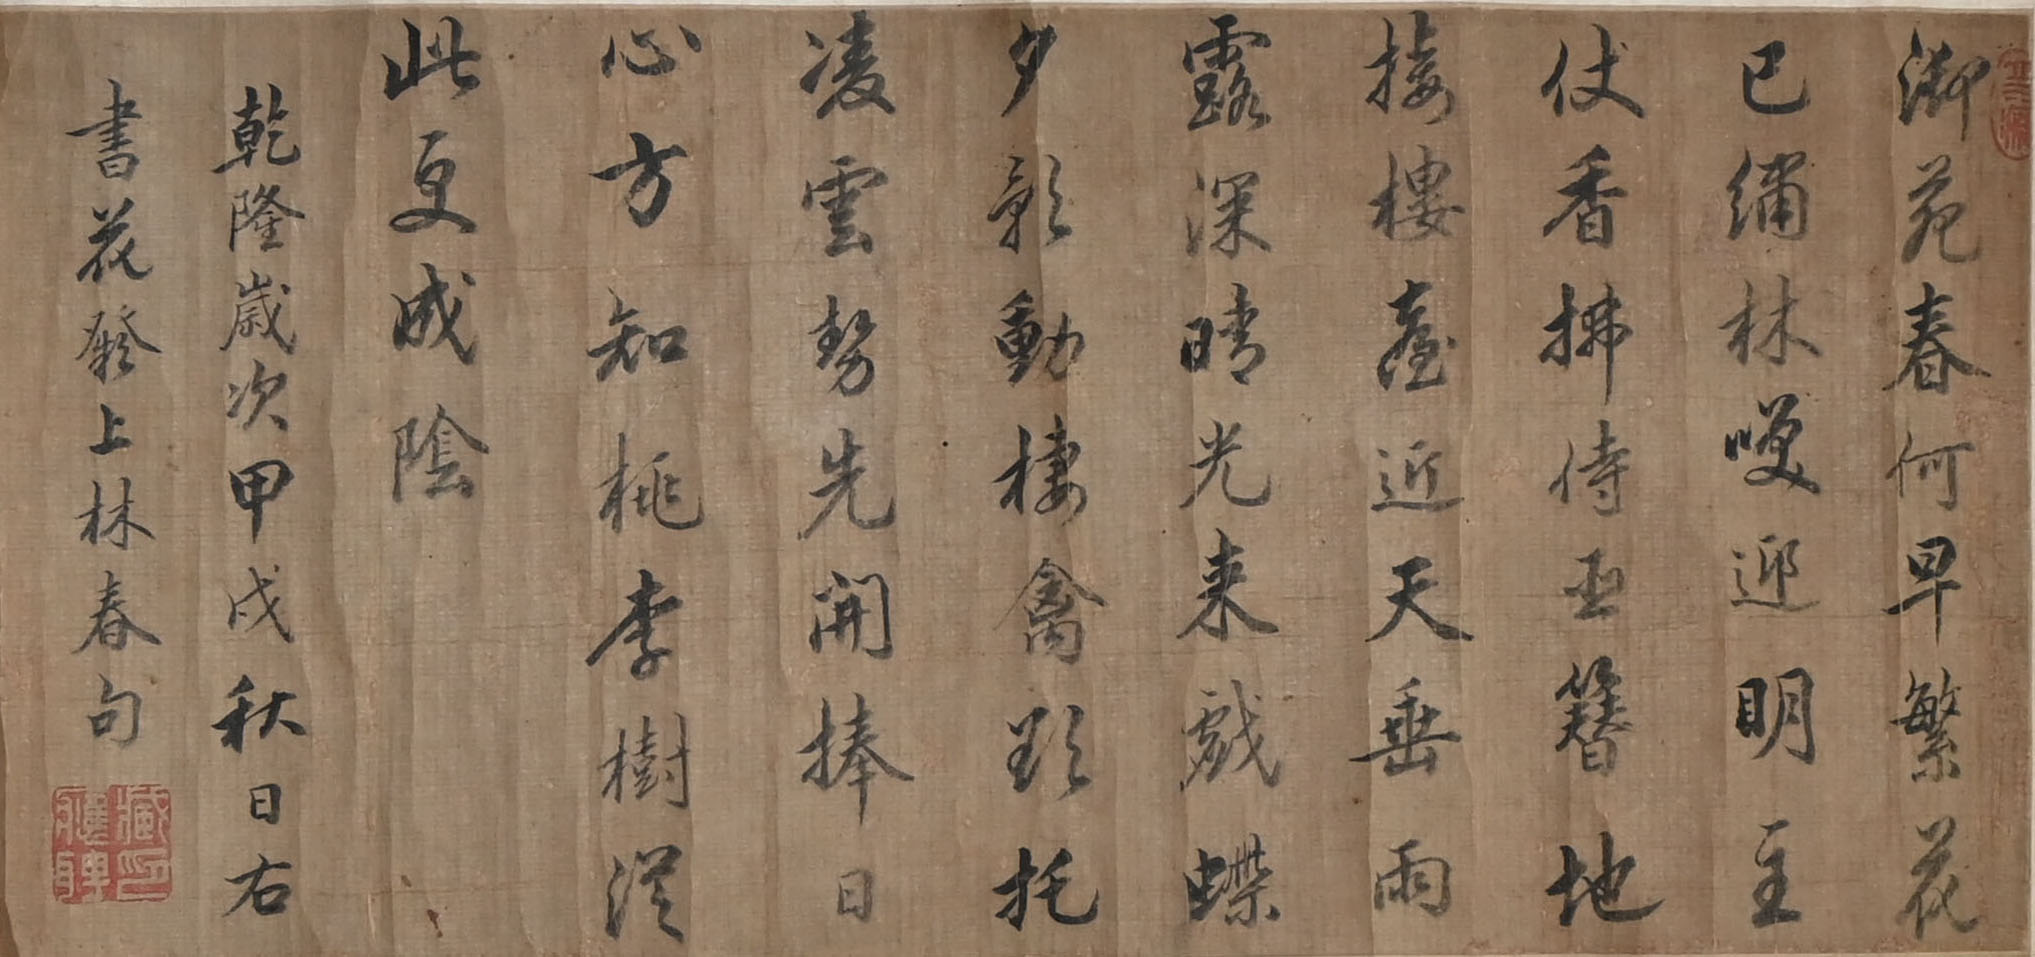 御苑春何早繁花
已繡林𠸄迎明主
仗香拂侍臣簪地
接樓臺近天垂雨
露深晴光来戲蝶
夕影動棲禽欲托
凌雲勢先開捧日
心方知桃李樹從
此更成陰
乾隆歲次甲戌秋日右
書花發上林春句